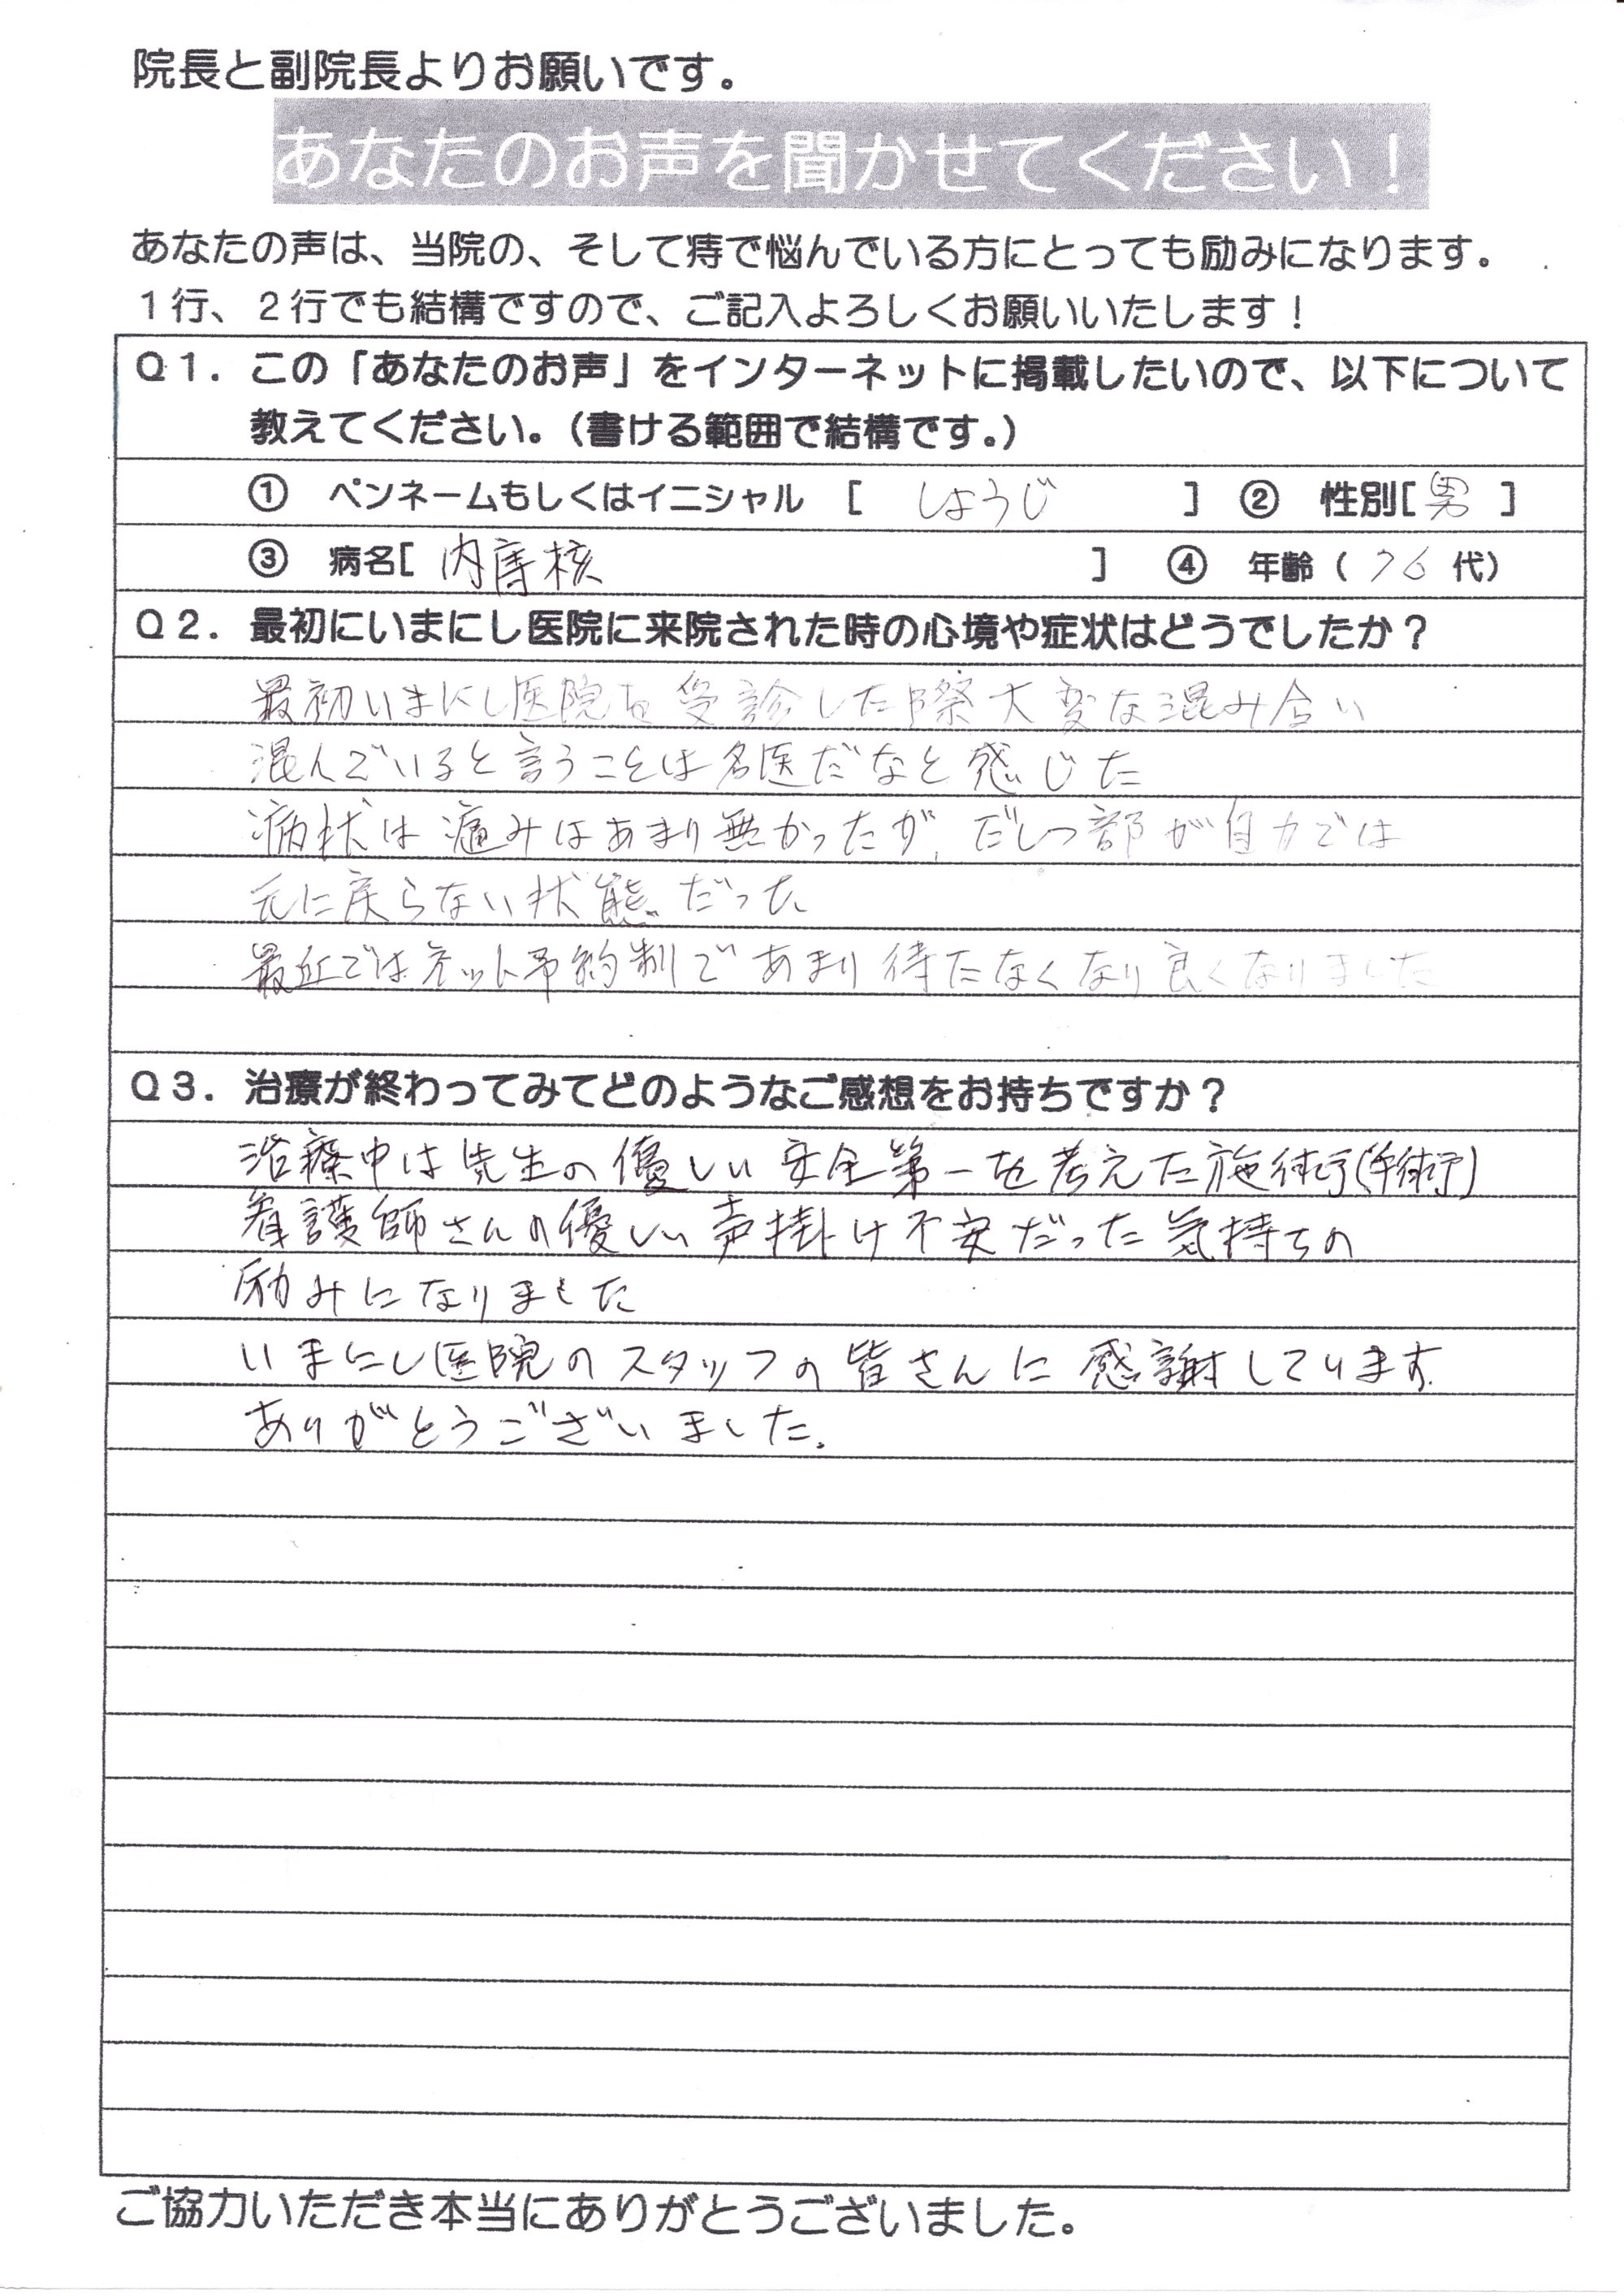 院長と副院長よりお願いです。
あなたのお声を聞かせてください！
あなたの声は、当院の、そして痔で悩んでいる方にとっても励みになります。
１行、２行でも結構ですので、ご記入よろしくお願いいたします！
Ｑ１．この「あなたのお声」をインターネットに掲載したいので、以下について
教えてください。（書ける範囲で結構です。）
① ペンネームもしくはイニシャル [ しょうじ ] ② 性別[ 男 ]
③ 病名[ 内痔核 ] ④ 年齢（ 76 代）
Ｑ２．最初にいまにし医院に来院された時の心境や症状はどうでしたか？
最初いまにし医院を受診した際大変な混み合い
混んでいると言うことは名医だなと感じた
病状は痛みはあまり無かったが、だしつ部が自力では
元に戻らない状態だった
最近ではネット予約制であまり待たなくなり良くなりました
Ｑ３．治療が終わってみてどのようなご感想をお持ちですか？
治療中は先生の優しい安全第一を考えた施術(手術)
看護師さんの優しい声掛け不安だった気持ちの
励みになりました
いまにし医院のスタッフの皆さんに感謝しています。
ありがとうございました。
ご協力いただき本当にありがとうございました。